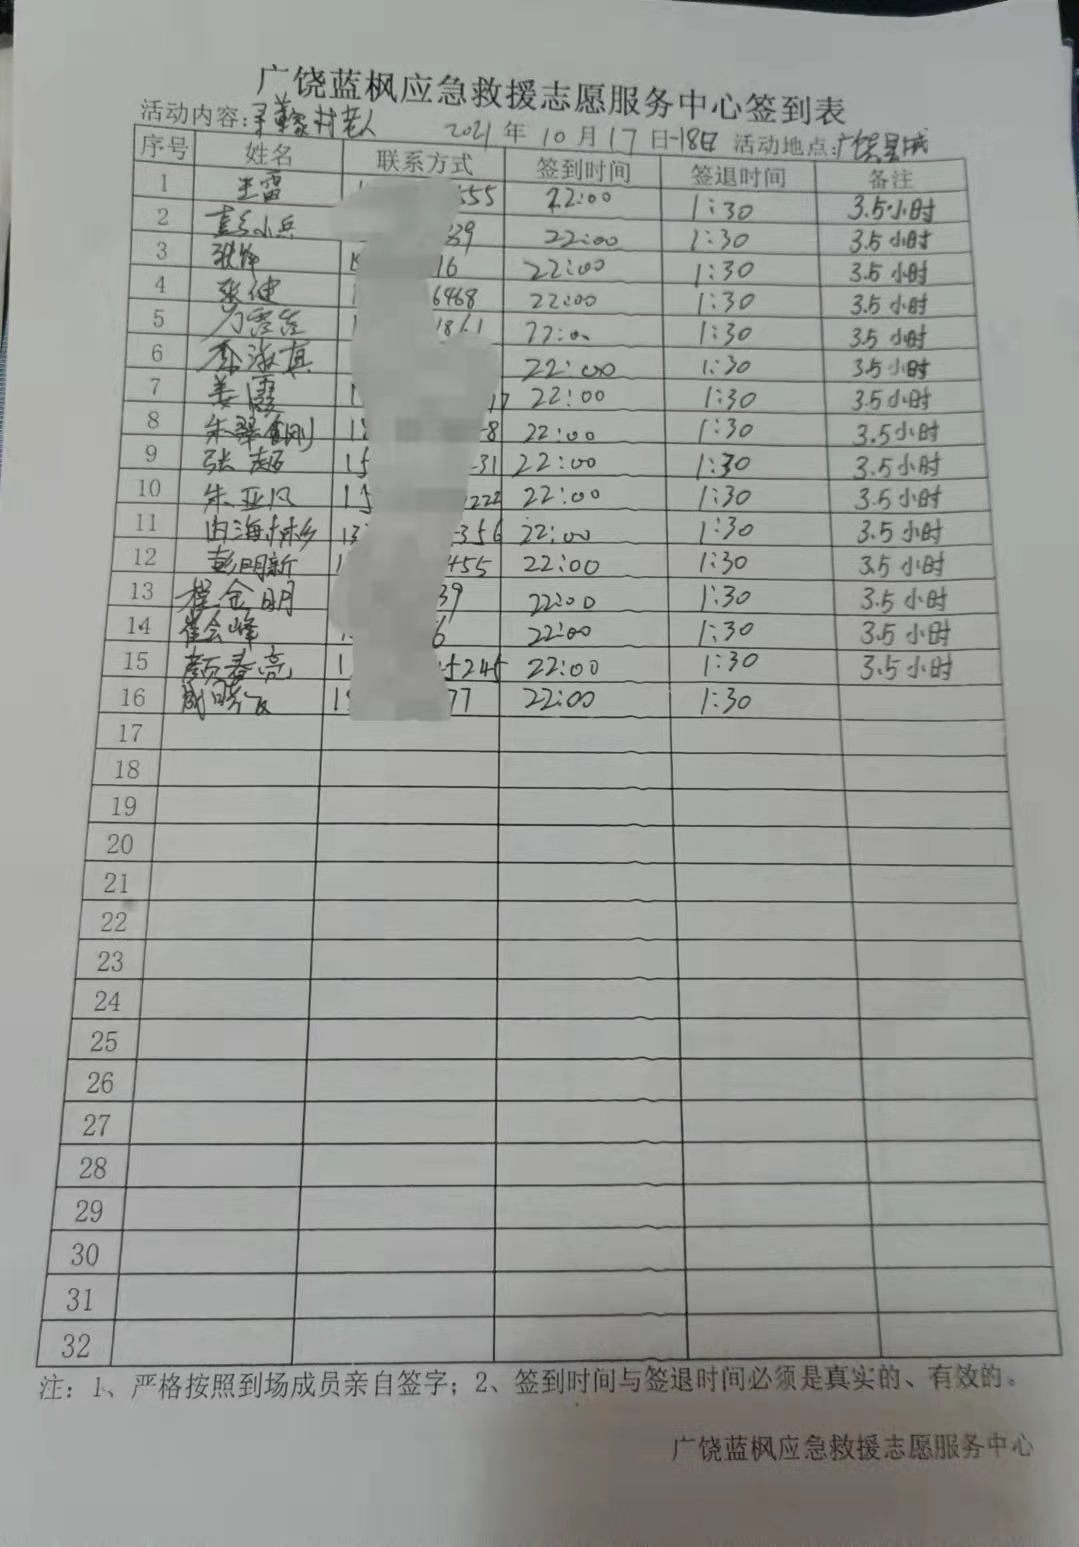 广饶蓝枫应急救援志愿服务中心签到表
活动内容:寻董家村老人 2021年10月17日-18日 活动地点:广饶县城
序号 姓名 联系方式 签到时间 签退时间 备注
1 王雷 555 22:00 1:30 3.5小时
2 小兵 39 22:00 1:30 3.5小时
3 16 22:00 1:30 3.5小时
4 张健 6468 22:00 1:30 3.5小时
5 22:00 1:30 3.5小时
6 22:00 1:30 3.5小时
7 姜霞 17 22:00 1:30 3.5小时
8 朱翠刚 8 22:00 1:30 3.5小时
9 张超 15 31 22:00 1:30 3.5小时
10 朱亚凡 15 222 22:00 1:30 3.5小时
11 由海彬 13 356 22:00 1:30 3.5小时
12 彭明新 455 22:00 1:30 3.5小时
13 程金明 39 22:00 1:30 3.5小时
14 崔会峰 6 22:00 1:30 3.5小时
15 颜春亮 1 5245 22:00 1:30 3.5小时
16 77 22:00 1:30
17
18
19
20
21
22
23
24
25
26
27
28
29
30
31
32
注:1、严格按照到场成员亲自签字;2、签到时间与签退时间必须是真实的、有效的。
广饶蓝枫应急救援志愿服务中心